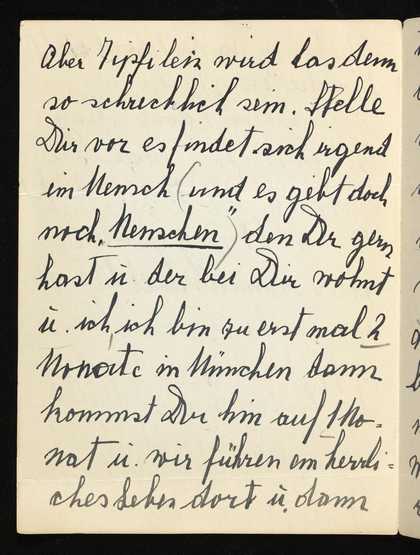 Aber Zipfilein wird das denn
so schrecklich sein. Stelle
Dir vor es findet sich irgend
ein Mensch (und es gibt doch
noch „Menschen") den Du gern
hast u. der bei Dir wohnt
u. ich, ich bin zu erst mal 2
Monate in München dann
kommst Du hin auf 1 Mo-
nat u. wir führen ein herrli-
ches Leben dort u. dann